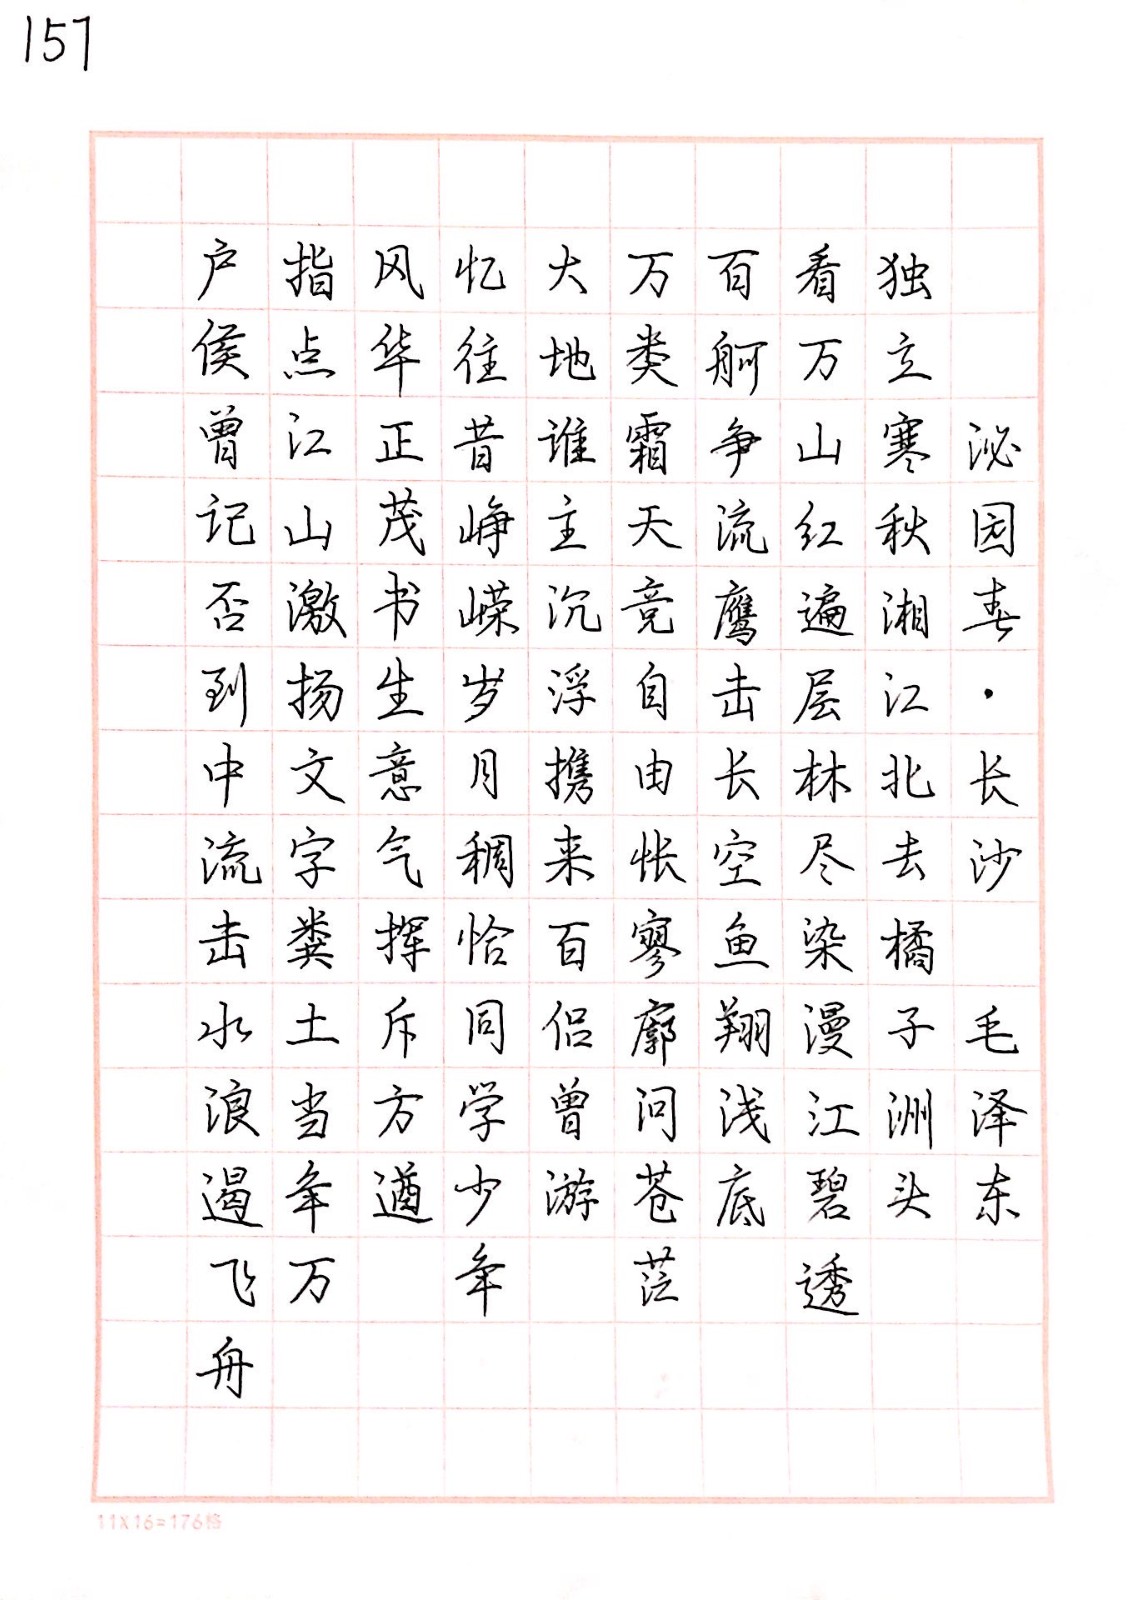 157
泌园春·长沙 毛泽东
独立寒秋湘江北去橘子洲头
看万山红遍层林尽染漫江碧透
百舸争流鹰击长空鱼翔浅底
万类霜天竞自由怅寥廓问苍茫
大地谁主沉浮携来百侣曾游
忆往昔峥嵘岁月稠恰同学少年
风华正茂书生意气挥斥方遒
指点江山激扬文字粪土当年万
户侯曾记否到中流击水浪遏飞舟
11X16=176格